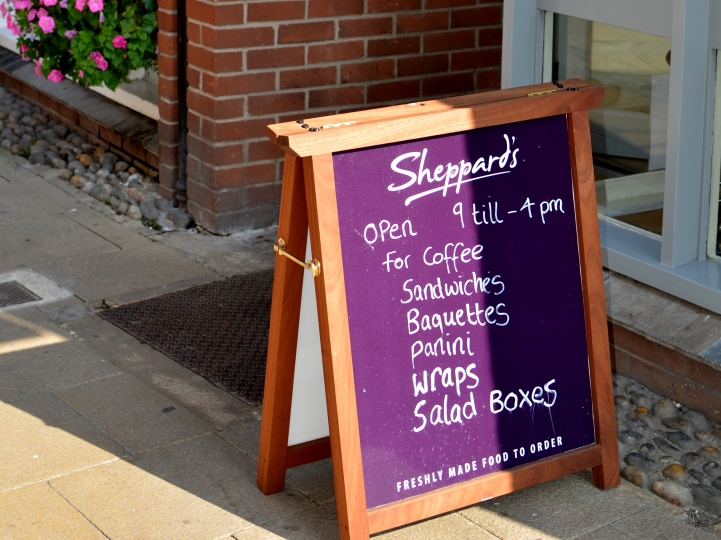 Sheppard's
OPen 9 till - 4 pm
For Coffee
Sandwiches
Baquettes
Panini
Wraps
Salad Boxes
FRESHLY MADE FOOD TO ORDER